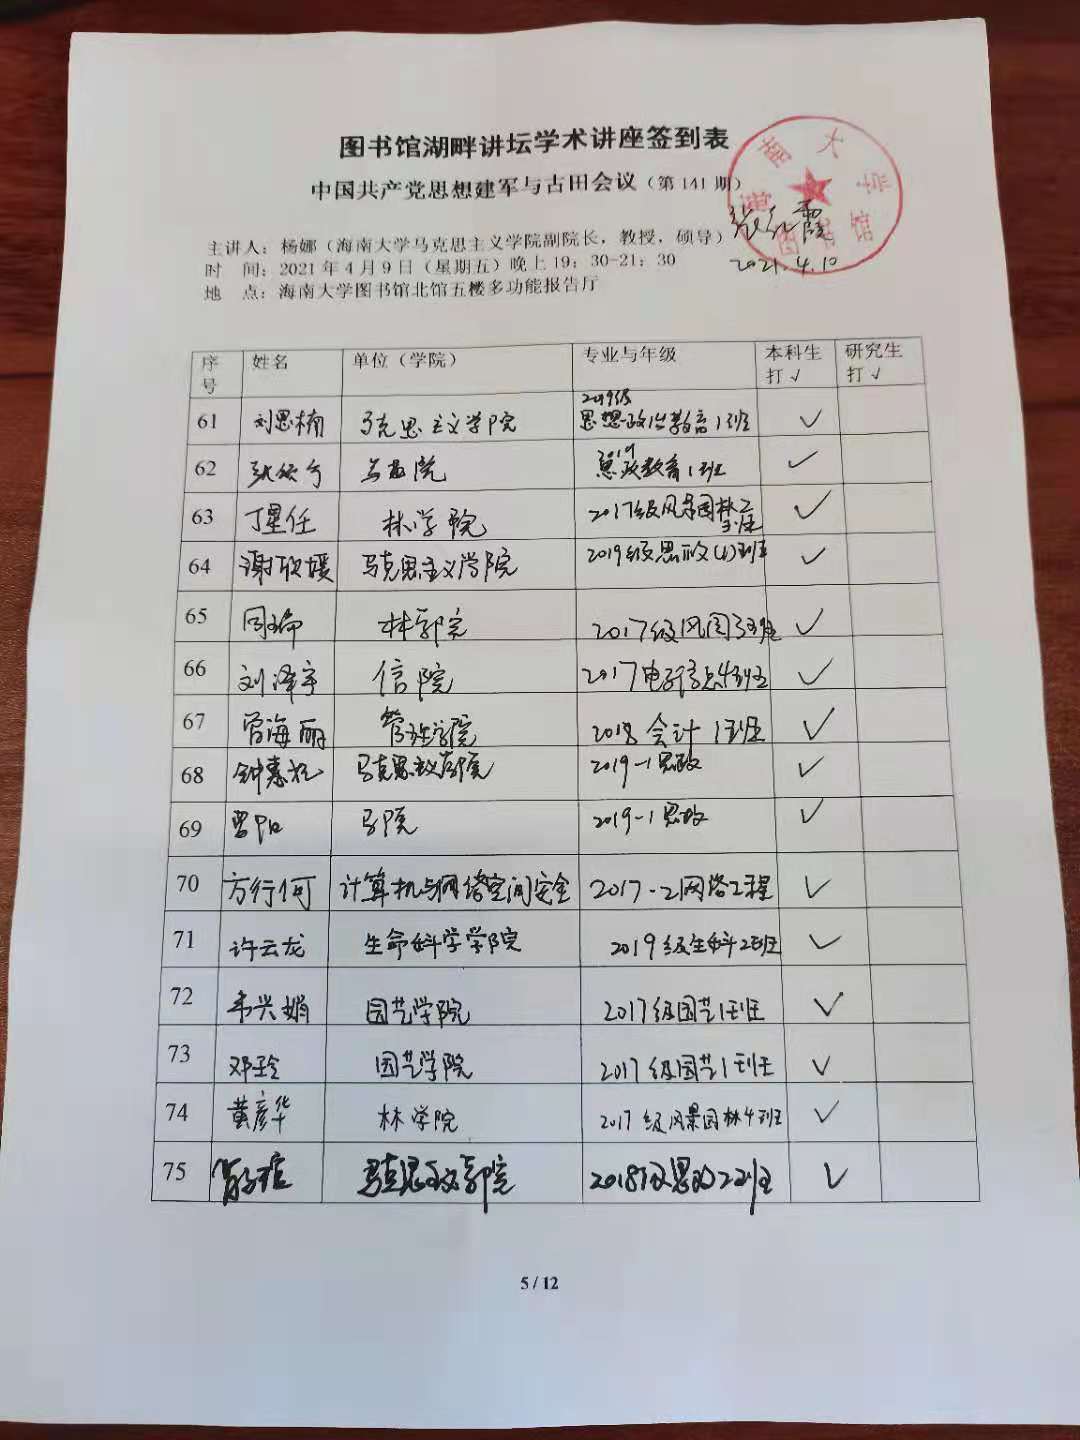 图书馆湖畔讲坛学术讲座签到表
中国共产党思想建军与古田会议（第 141 期）
海南大学
图书馆
主讲人：杨娜（海南大学马克思主义学院副院长，教授，硕导）
2021.4.10
时 间：2021 年 4 月 9 日（星期五）晚上 19：30-21：30
地 点：海南大学图书馆北馆五楼多功能报告厅
序号 姓名 单位（学院） 专业与年级 本科生打√ 研究生打√
61 刘思楠 马克思主义学院 2019级思想政治教育1班 ✓
62 马西院 2019思政教育1班 ✓
63 丁星任 林学院 2017级风景园林 ✓
64 谢欣媛 马克思主义学院 2019级思政(1)班 ✓
65 周瑜 林学院 2017级风园3班 ✓
66 刘泽宇 信院 2017电子信息4班 ✓
67 曾海丽 管理学院 2018会计1班 ✓
68 马克思主义学院 2019-1思政 ✓
69 曾阳 马院 2019-1思政 ✓
70 方行何 计算机与网络空间安全 2017-2网络工程 ✓
71 许云龙 生命科学学院 2019级生科2班 ✓
72 韦兴娟 园艺学院 2017级园艺1班 ✓
73 邓玲 园艺学院 2017级园艺1班 ✓
74 黄彦华 林学院 2017级风景园林4班 ✓
75 马克思主义学院 2018级思政2班 ✓
5 / 12